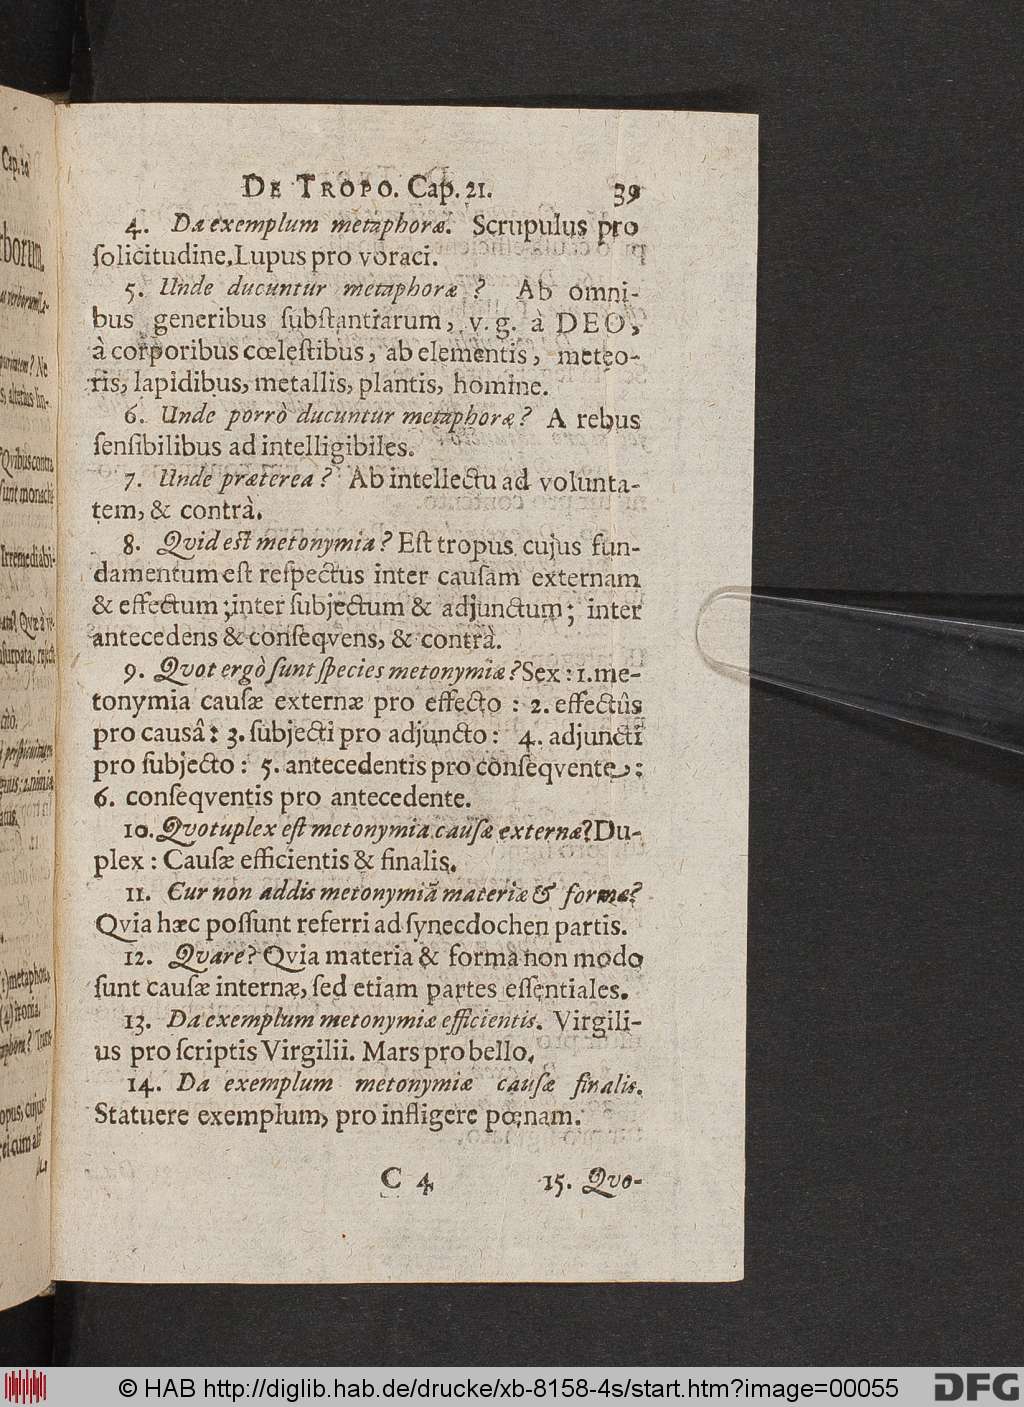 DE TROPO. Cap. 21. 39
4. Da exemplum metaphoræ. Scrupulus pro
ſolicitudine. Lupus pro voraci.
5. Unde ducuntur metaphoræ? Ab omni-
bus generibus ſubſtantiarum, v. g. à DEO,
à corporibus cœleſtibus, ab elementis, meteo-
ris, lapidibus, metallis, plantis, homine.
6. Unde porrò ducuntur metaphoræ? A rebus
ſenſibilibus ad intelligibiles.
7. Unde præterea? Ab intellectu ad volunta-
tem, & contrà.
8. Qvid eſt metonymia? Eſt tropus, cujus fun-
damentum eſt reſpectus inter cauſam externam
& effectum; inter ſubjectum & adjunctum; inter
antecedens & conſeqvens, & contrà.
9. Qvot ergò ſunt ſpecies metonymiæ? Sex: 1. me-
tonymia cauſæ externæ pro effecto: 2. effectûs
pro causâ: 3. ſubjecti pro adjuncto: 4. adjuncti
pro ſubjecto: 5. antecedentis pro conſeqvente:
6. conſeqventis pro antecedente.
10. Qvotuplex eſt metonymia cauſæ externæ? Du-
plex: Cauſæ efficientis & finalis.
11. Cur non addis metonymiã materiæ & formæ?
Qvia hæc poſſunt referri ad ſynecdochen partis.
12. Qvare? Qvia materia & forma non modo
ſunt cauſæ internæ, ſed etiam partes eſſentiales.
13. Da exemplum metonymiæ efficientis. Virgili-
us pro ſcriptis Virgilii. Mars pro bello.
14. Da exemplum metonymiæ cauſæ finalis.
Statuere exemplum, pro infligere pœnam.
C 4 15. Qvo-
© HAB http://diglib.hab.de/drucke/xb-8158-4s/start.htm?image=00055
DFG